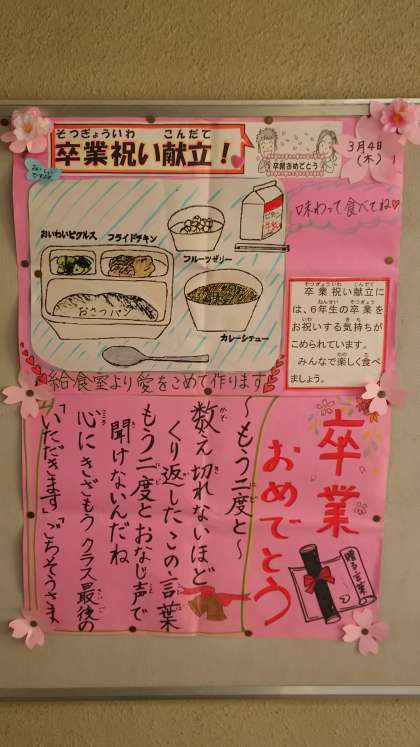 そつぎょういわ こんだて
卒業祝い献立！
卒業おめでとう
3月4日
(木)
味わって食べてね♡
おいわいピクルス
フライドチキン
フルーツゼリー
おさつパン
カレーシチュー
給食室より愛をこめて作ります
そつぎょういわ こんだて
卒業祝い献立に
は、6年生の卒業を
お祝いする気持ちが
こめられています。
みんなで楽しく食べ
ましょう。
卒業
おめでとう
贈る言葉
〜もう二度と〜
数え切れないほど
くり返したこの言葉
もう二度とおなじ声で
聞けないんだね
心にきざもうクラス最後の
「いただきます」「ごちそうさま」